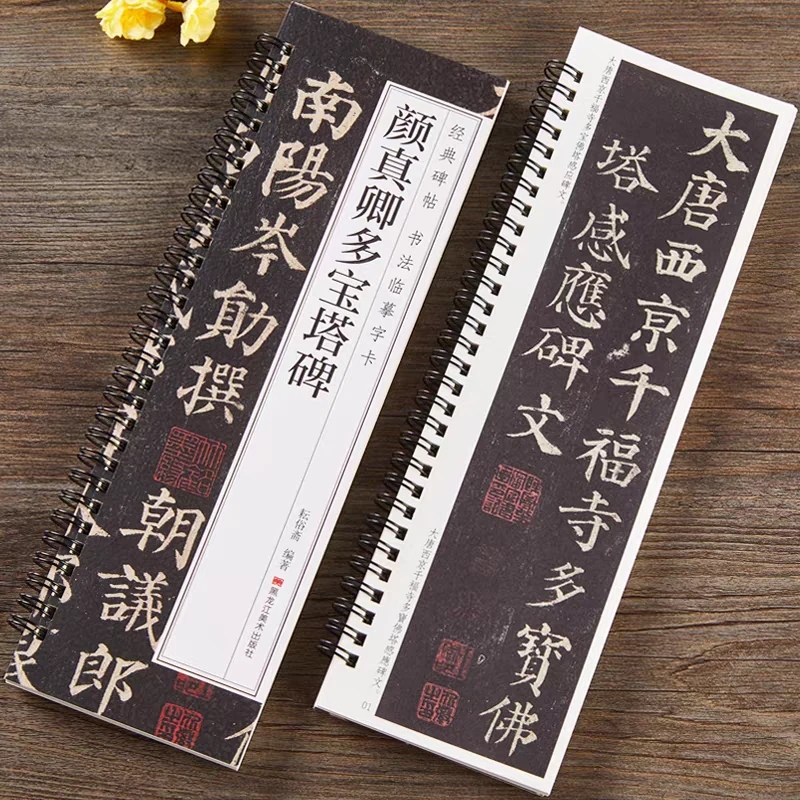 经典碑帖 书法临摹字卡
颜真卿多宝塔碑
耘俗斋 编著
黑龙江美术出版社
南陽岑勛撰
朝議郎
大唐西京千福寺多寶佛
塔感應碑文
大唐西京千福寺多宝佛塔感应碑文。
大唐西京千福寺多寶佛塔感應碑文。
01